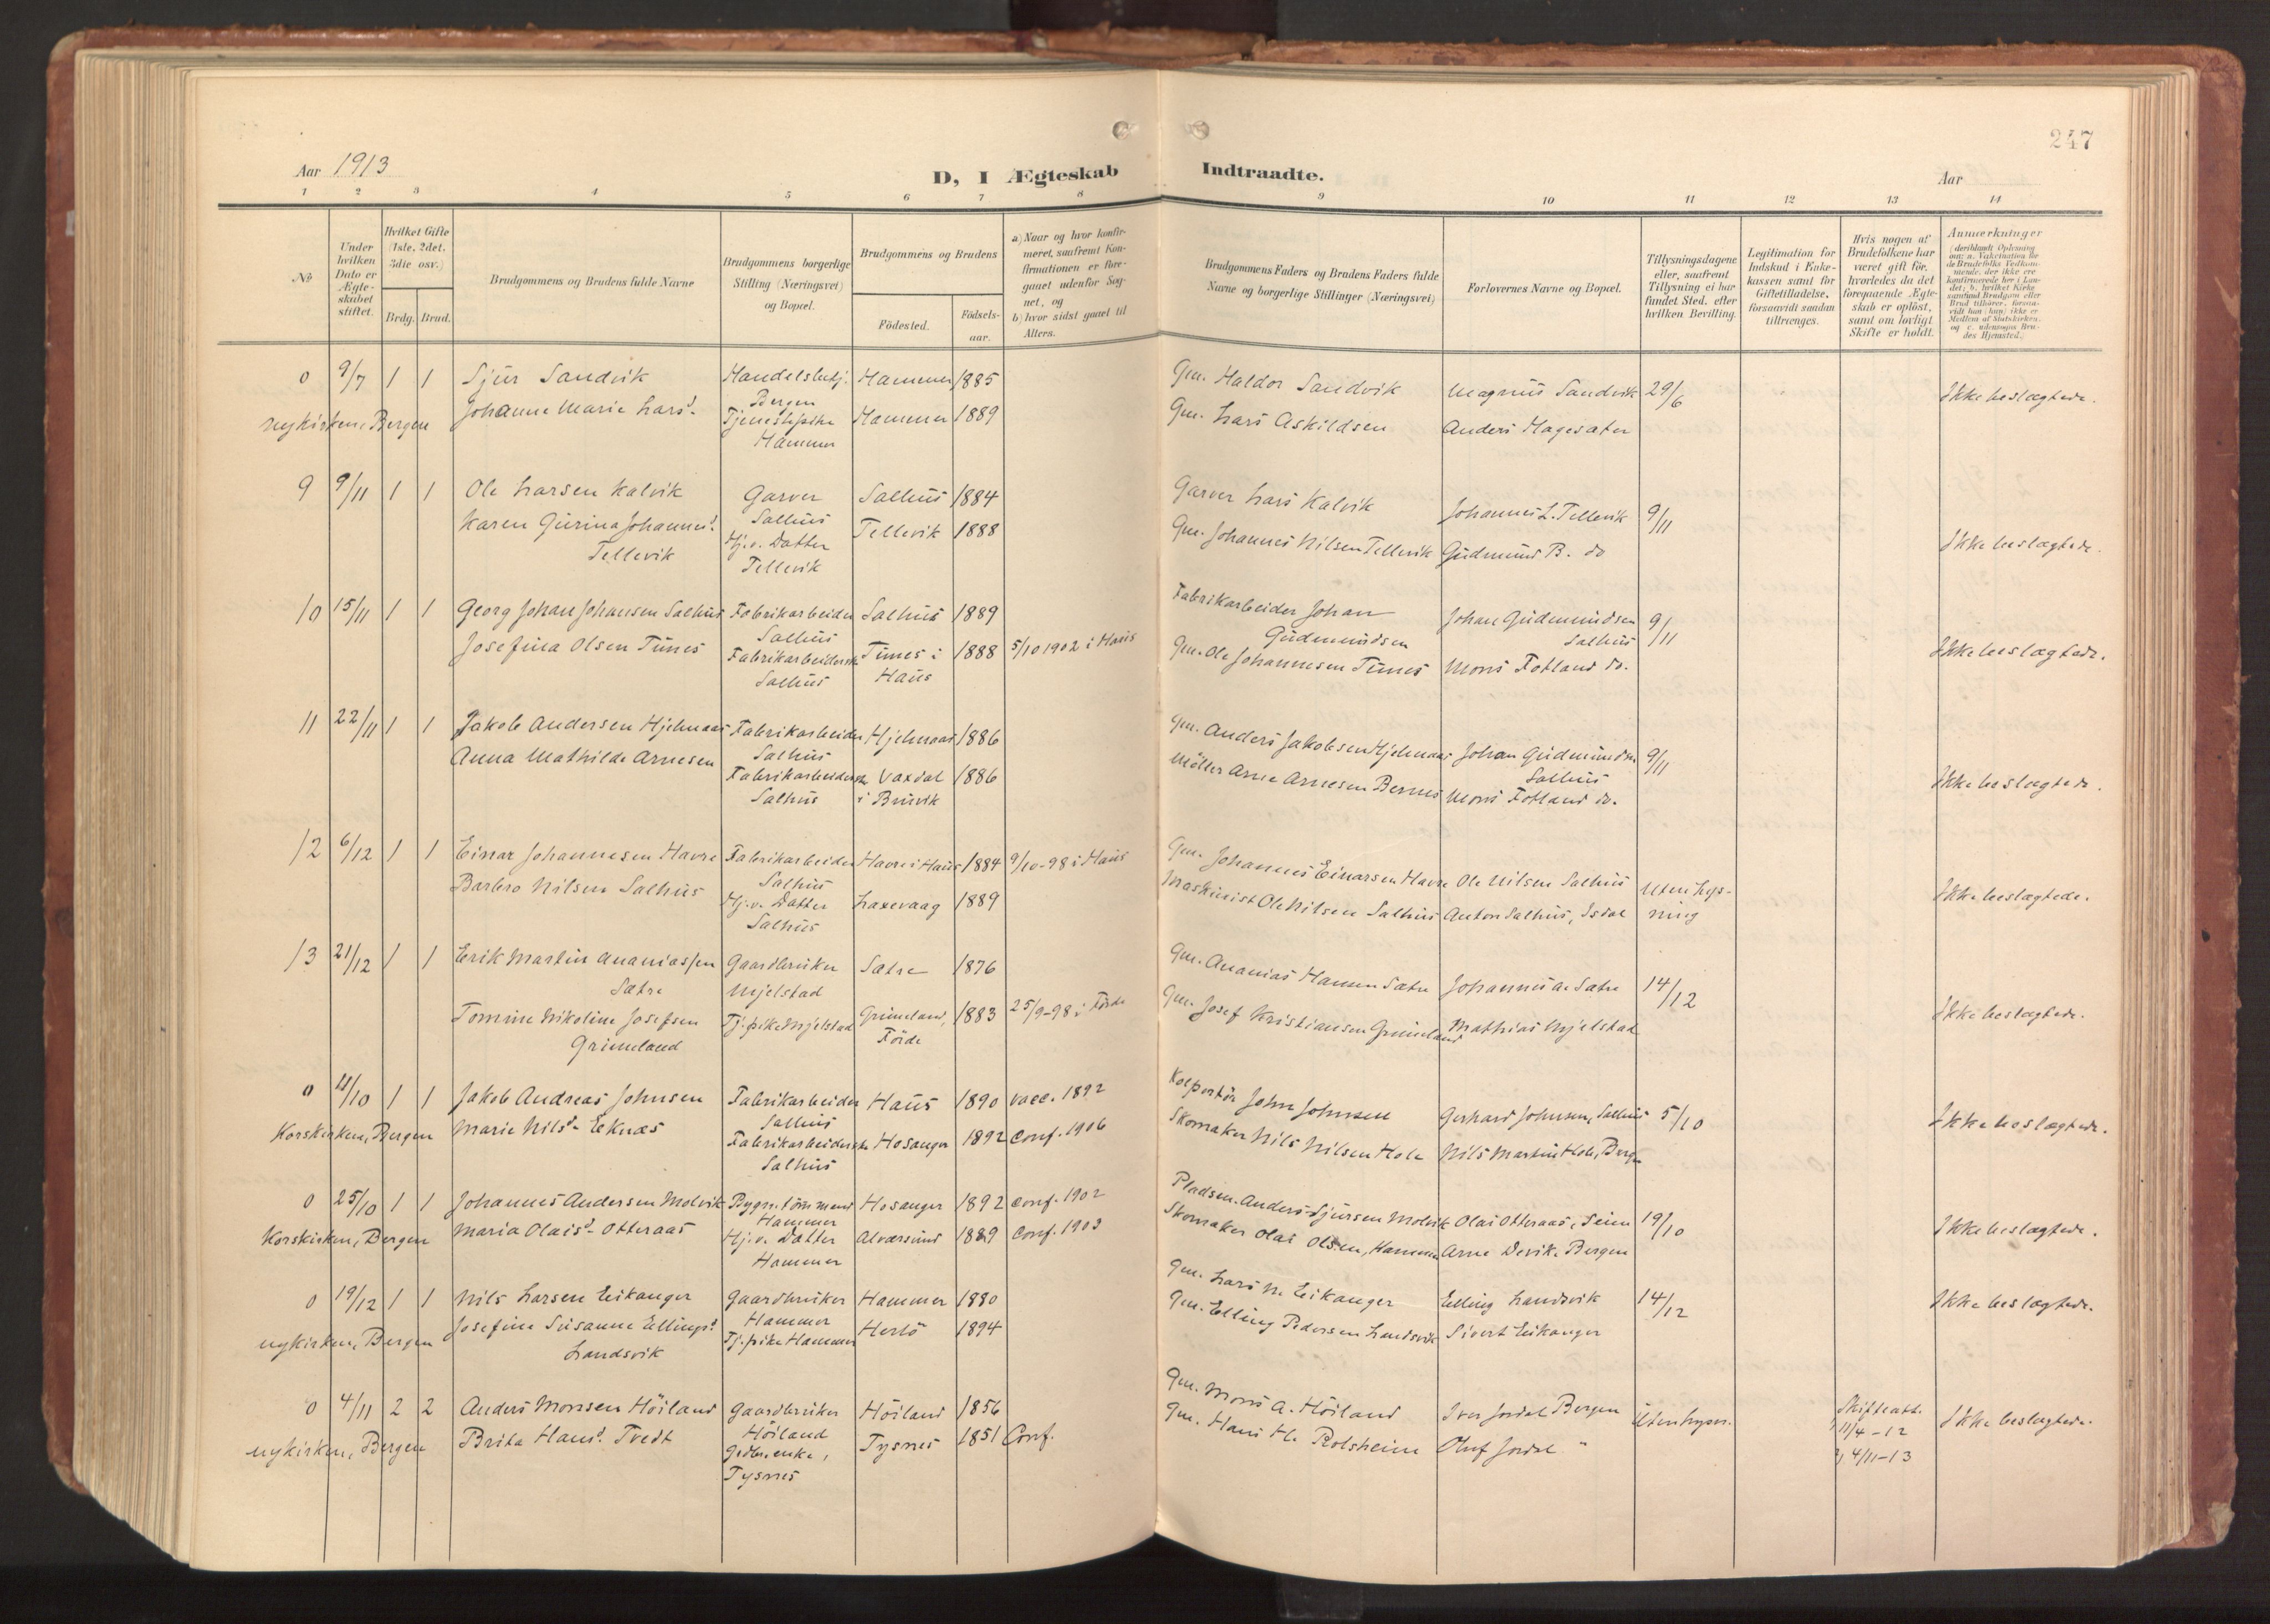 247
Aar 1913
D, I Ægteskab Indtraadte.
Aar
1 2 3 4 5 6 7 8 9 10 11 12 13 14
No
Under hvilken Dato er Ægteskabet stiftet.
Hvilket Gifte (1ste, 2det, 3die osv.)
Brdg. Brud.
Brudgommens og Brudens fulde Navne
Brudgommens borgerlige Stilling (Næringsvei) og Bopæl.
Brudgommens og Brudens
Födested.
Födselsaar.
a) Naar og hvor konfirmeret, saafremt Konfirmationen er foregaaet udenfor Sognet, og
b) hvor sidst gaaet til Alters.
Brudgommens Faders og Brudens Faders fulde Navne og borgerlige Stillinger (Næringsvei)
Forlovernes Navne og Bopæl.
Tillysningsdagene eller, saafremt Tillysning ei har fundet Sted, efter hvilken Bevilling.
Legitimation for Indskud i Enkekassen samt for Giftetilladelse, forsaavidt saadan tiltrænges.
Hvis nogen af Brudefolkene har været gift för, hvorledes da det foregaaende Ægteskab er oplöst, samt om lovligt Skifte er holdt.
Anmerkninger
0 9/7 1 1 Sjur Sandvik Handelsbetj. Bergen Hammer 1885 Gm. Haldor Sandvik Magnus Sandvik 29/6 Ikke beslægtede.
Nykirken, Bergen Johanne Marie Larsd. Tjenestepike Hammer Hammer 1889 Gm. Lars Askildsen Anders Hagesæter
9 9/11 1 1 Ole Larsen Kalvik Garver Salhus Salhus 1884 Garver Lars Kalvik Johannes L. Tellevik 9/11
Karen Gurina Johannesd. Tellevik Hj.v. Datter Tellevik Tellevik 1888 Gm. Johannes Nilsen Tellevik Gudmund B. do Ikke beslægtede.
10 15/11 1 1 Georg Johan Johansen Salhus Fabrikarbeider Salhus Salhus 1889 Fabrikarbeider Johan Gudmundsen Johan Gudmundsen Salhus 9/11
Josefina Olsen Tunes Fabrikarbeiderske Salhus Tunes i Haus 1888 5/10 1902 i Haus Gm. Ole Johannesen Tunes Mons Fotland do. Ikke beslægtede.
11 22/11 1 1 Jakob Andersen Hjelmaas Fabrikarbeider Salhus Hjelmaas 1886 Gm. Anders Jakobsen Hjelmaas Johan Gudmundsen Salhus 9/11
Anna Mathilde Arnesen Fabrikarbeiderske Salhus Vaxdal i Bruvik 1886 Möller Arne Arnesen Mons Fotland do. Ikke beslægtede.
12 6/12 1 1 Einar Johannesen Havre Fabrikarbeider Salhus Havre i Haus 1884 9/10-98 i Haus Gm. Johannes Einarsen Havre Ole Nilsen Salhus Uten lysning
Barbro Nilsen Salhus Hj.v. Datter Salhus Laxevaag 1889 Maskinist Ole Nilsen Salhus Anton Salhus, Isdal Ikke beslægtede.
13 21/12 1 1 Erik Martin Ananiassen Sætre Gaardbruker Mjelstad Sætre 1876 Gm. Ananias Hansen Sætre Johannes A. Sætre 14/12
Tomine Nikoline Josefsen Grimeland Tj.pike Mjelstad Grimeland, Förde 1883 25/9-98 i Förde Gm. Josef Kristiansen Grimeland Mathias Mjelstad Ikke beslægtede.
0 11/10 1 1 Jakob Andreas Johnsen Fabrikarbeider Salhus Haus 1890 vacc. 1892 Kolportör John Johnsen Gerhard Johnsen, Salhus 5/10 Ikke beslægtede.
Korskirken, Bergen Marie Nilsd. Eknæs Fabrikarbeiderske Salhus Hosanger 1892 Conf. 1906 Skomaker Nils Nilsen Hole Nils Martin Hole, Bergen
0 25/10 1 1 Johannes Andersen Molvik Bygn.tömmerm. Hammer Hosanger 1892 Conf. 1902 Pladsm. Anders Sjursen Molvik Olai Otteraas, Seim 19/10 Ikke beslægtede.
Korskirken, Bergen Maria Olaisd. Otteraas Hj.v. Datter Hammer Alværsund 1889 Conf. 1903 Skomaker Olai Olsen, Hammer Arne Devik, Bergen
0 19/12 1 1 Nils Larsen Eikanger Gaardbruker Hammer Hammer 1880 Gm. Lars N. Eikanger Elling Landsvik 14/12 Ikke beslægtede.
Nykirken, Bergen Josefine Susanne Ellingsd. Landsvik Tj.pike Hammer Herlö 1894 Gm. Elling Pedersen Landsvik Sivert Eikanger
0 4/11 2 2 Anders Monsen Höiland Gaardbruker Höiland Höiland 1856 Gm. Mons A. Höiland Iver Jordal Bergen Uten lysn. Skifteatt. 1) 11/4-12 Ikke beslægtede.
Nykirken, Bergen Brita Hansd. Tvedt Gdbr.enke, Tysnes Tysnes 1851 Conf. Gm. Hans H. Rolsheim Oluf Jordal " 2) 4/11-13